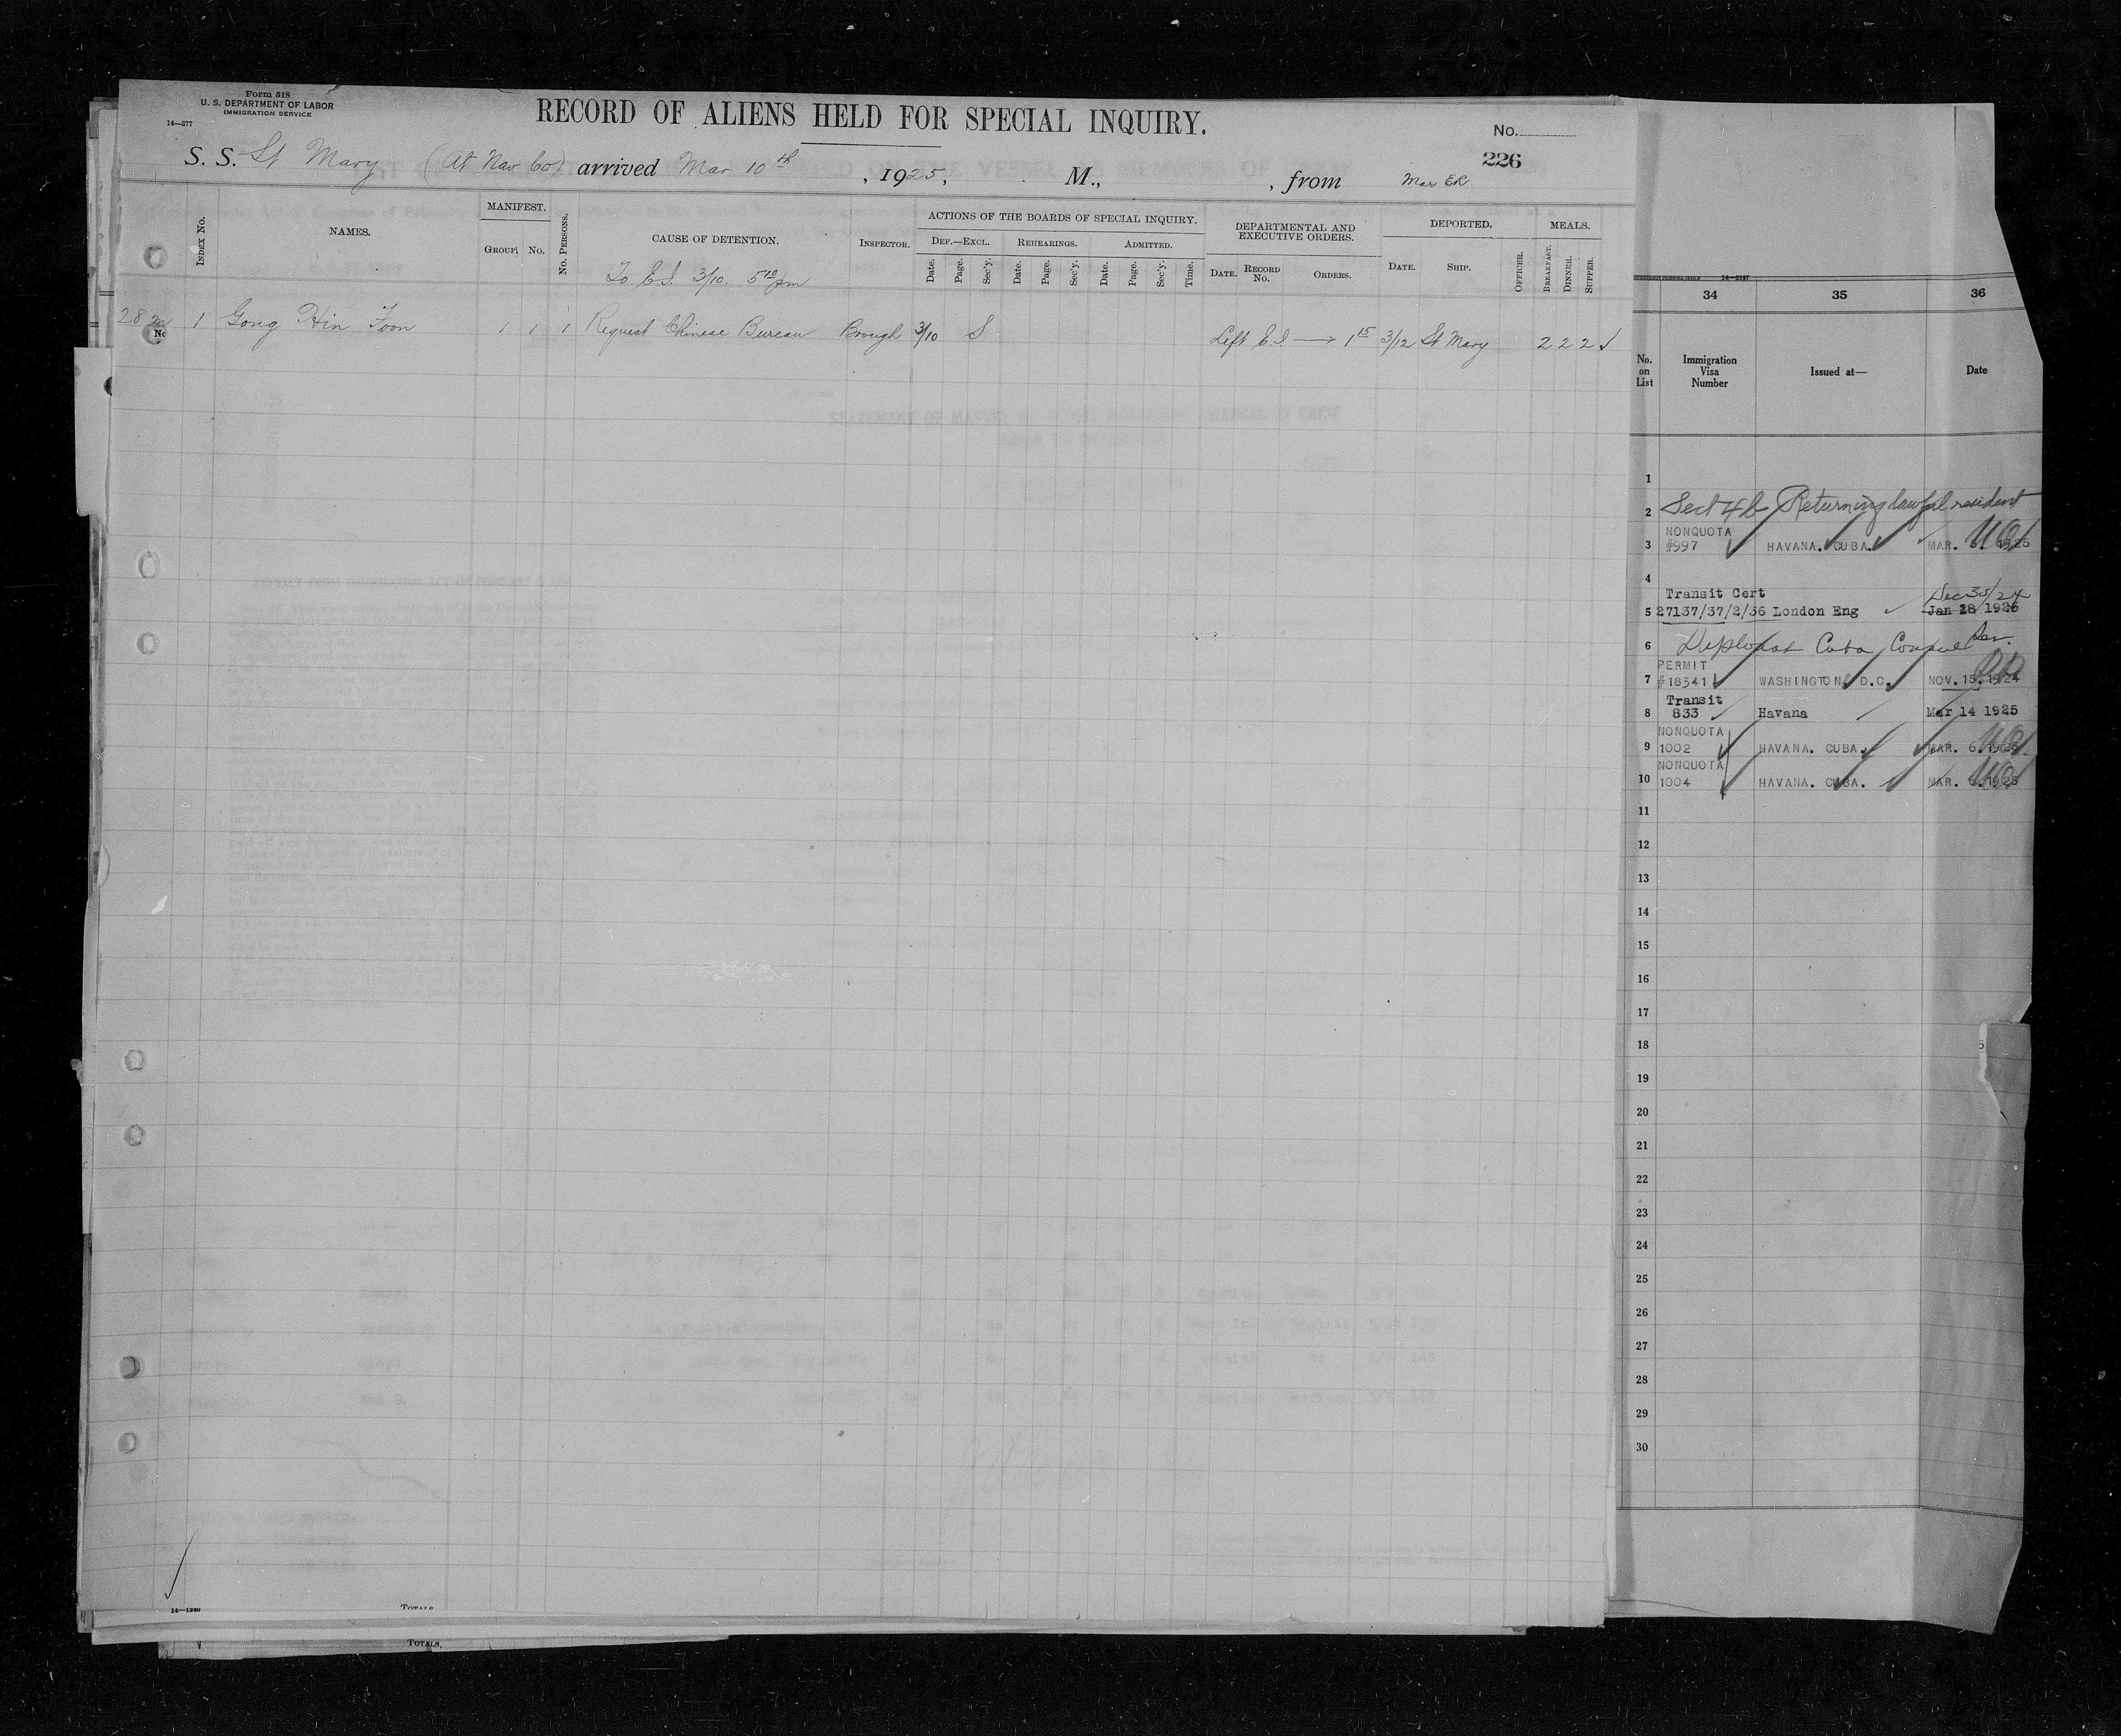 Form 518
U. S. DEPARTMENT OF LABOR
IMMIGRATION SERVICE
14—377
RECORD OF ALIENS HELD FOR SPECIAL INQUIRY.
No.
226
S. S. St Mary (At Nav Co) arrived Mar 10th, 1925, M., , from
INDEX No. NAMES. MANIFEST. GROUP. No. No. PERSONS. CAUSE OF DETENTION. INSPECTOR. ACTIONS OF THE BOARDS OF SPECIAL INQUIRY. DEPARTMENTAL AND EXECUTIVE ORDERS. DEPORTED. MEALS.
DEF.—EXCL. REHEARINGS. ADMITTED.
Date. Page. Sec'y. Date. Page. Sec'y. Date. Page. Sec'y. Time. DATE. RECORD No. ORDERS. DATE. SHIP. OFFICER. BREAKFAST. DINNER. SUPPER.
To E.I. 3/10. 5 10 pm
28 No 1 Gong Hin Foon 1 1 1 Request Chinese Bureau Brough 3/10 S Left E.I. → 1 15 3/12 St Mary 2 2 2 ✓
14—1240
TOTALS
TOTALS,
14—2197
34 35 36
No. on List
Immigration Visa Number
Issued at—
Date
1
2 Sect 4b Returning lawful resident
3 NONQUOTA #997 HAVANA. CUBA. MAR. 6. 1925
4
5 Transit Cert 27137/37/2/36 London Eng Dec 30/24 Jan 28 1925
6 Diplomat Cuba Consul
7 PERMIT #18541 WASHINGTON, D.C. NOV. 15, 1924
8 Transit 833 Havana Mar 14 1925
9 NONQUOTA 1002 HAVANA. CUBA. MAR. 6. 1925
10 NONQUOTA 1004 HAVANA. CUBA. MAR. 6. 1925
11
12
13
14
15
16
17
18
19
20
21
22
23
24
25
26
27
28
29
30